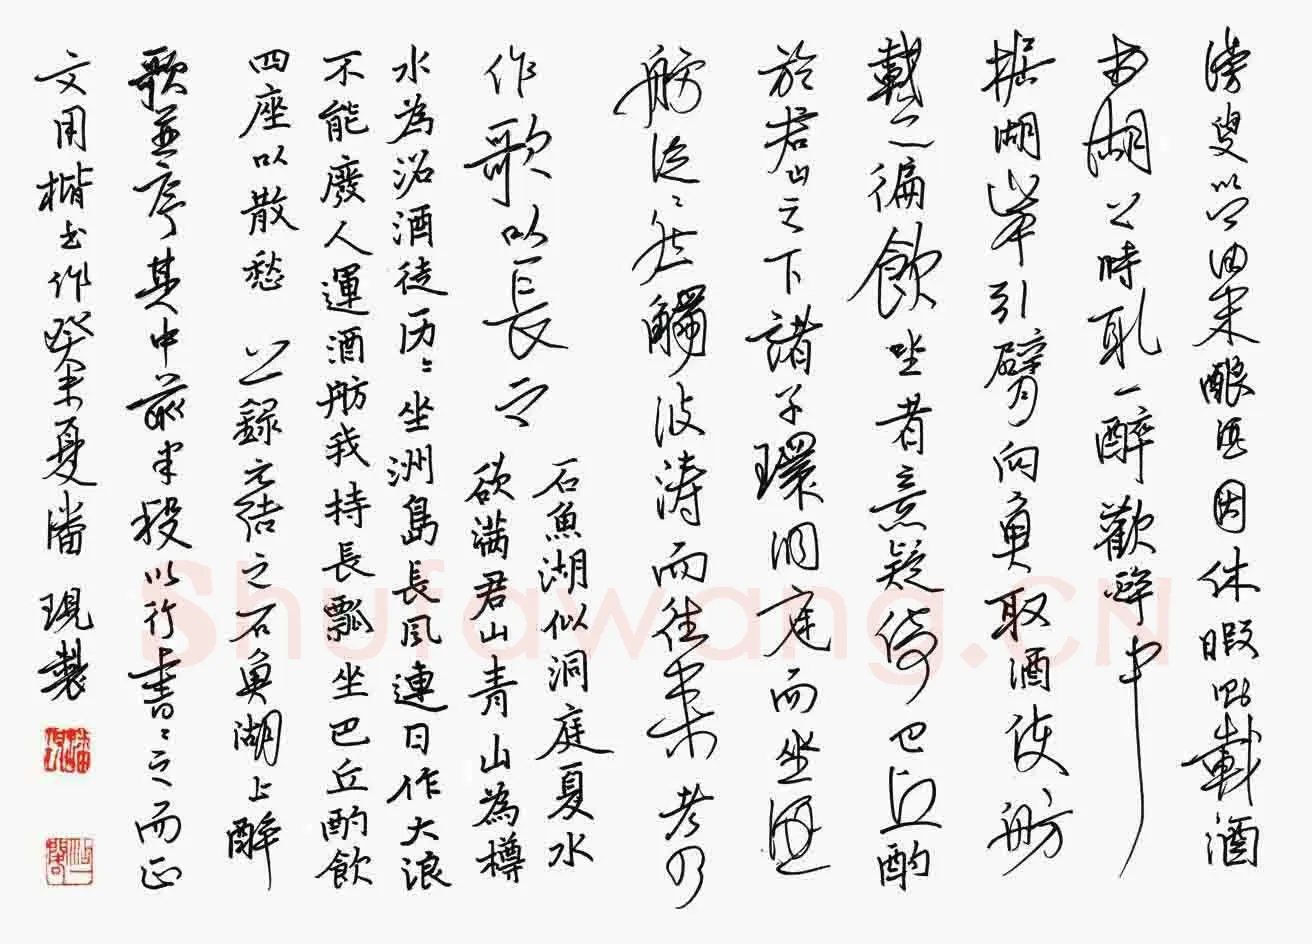 漫叟以公田米釀酒因休暇則載酒
於湖上時取一醉歡醉中
據湖岸引臂向魚取酒使舫
載之徧飲坐者意疑倚巴丘酌
於君山之下諸子環洞庭而坐酒
舫泛〻然觸波濤而往來者乃
作歌以長之
石魚湖似洞庭夏水
欲满君山青山為樽
水為沼酒徒历〻坐洲島長風連日作大浪
不能廢人運酒舫我持長瓢坐巴丘酌飲
四座以散愁 上録元结之石魚湖上醉
歌並序其中前半段以行書〻之而正
文用楷书作癸未夏潘現製
Shufawang.CN